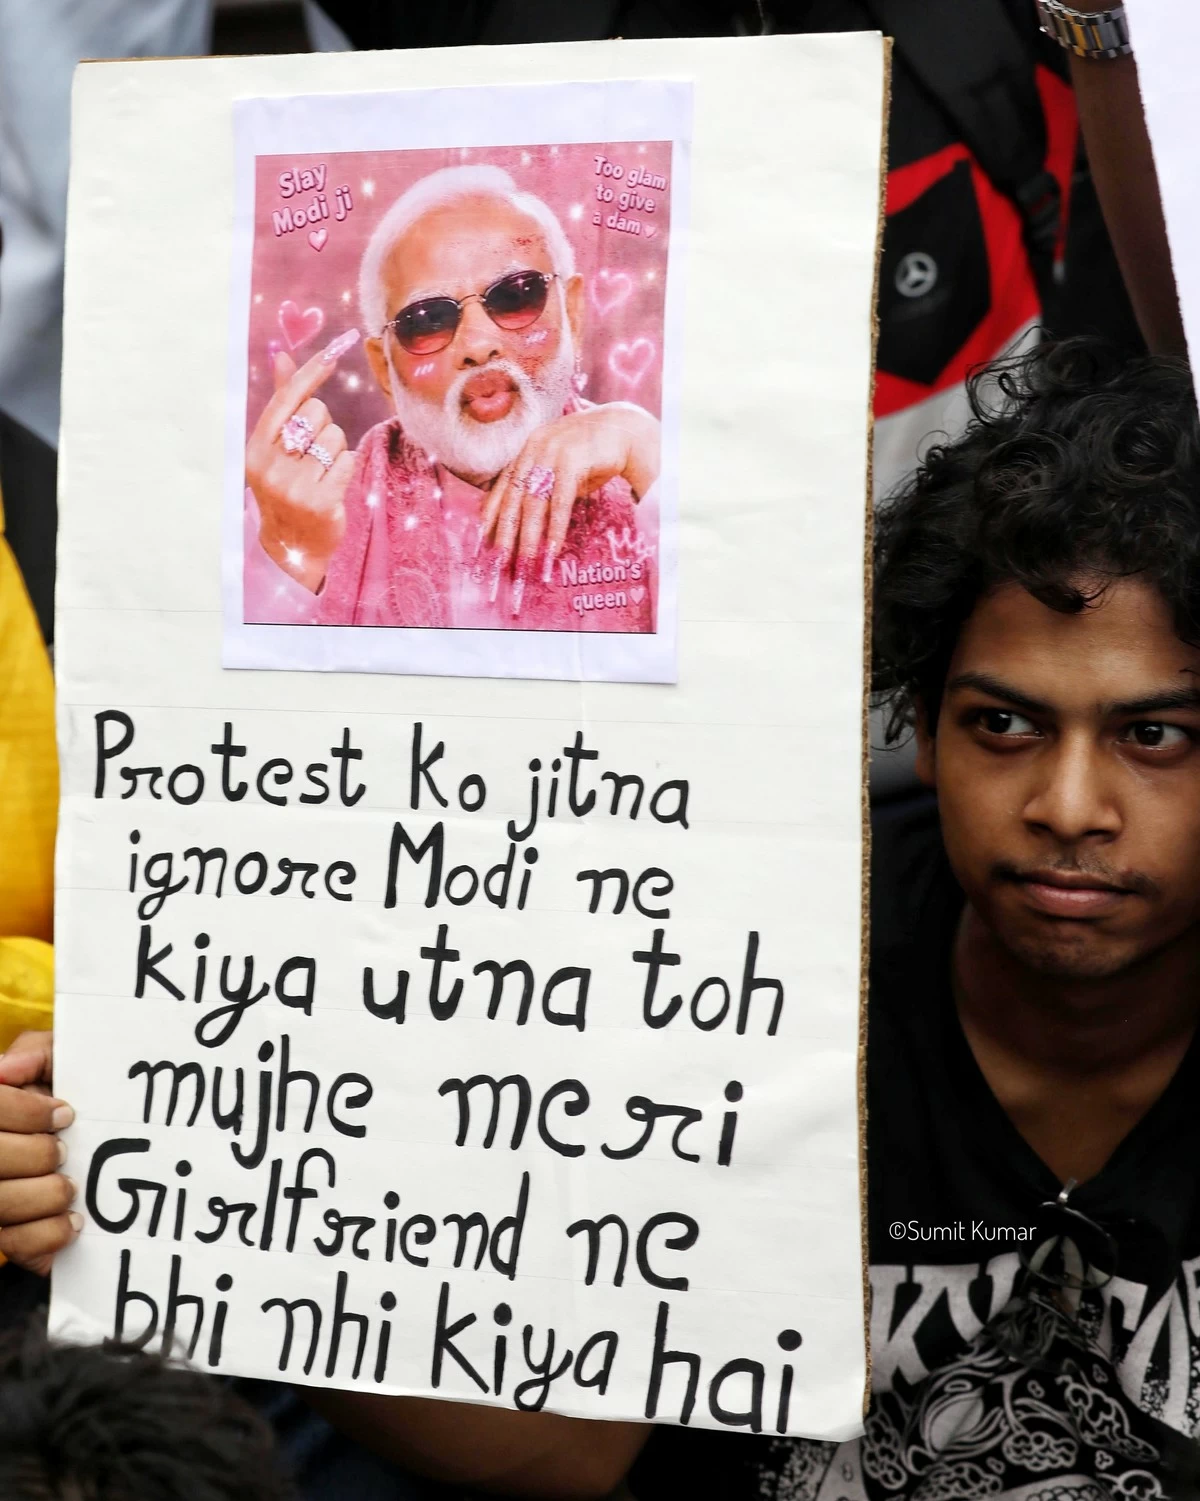 Slay
Modi ji
Too glam
to give
a dam
Nation's
queen
Protest ko jitna
ignore Modi ne
kiya utna toh
mujhe meri
Girlfriend ne
bhi nhi kiya hai
©Sumit Kumar